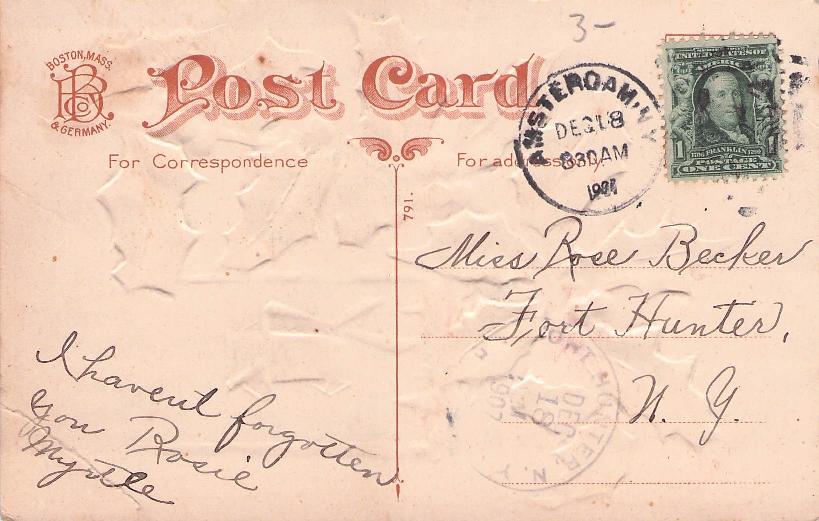 3-
BOSTON, MASS.
& GERMANY.
Post Card
For Correspondence
For address
791.
AMSTERDAM, N.Y.
DEC 18
830AM
1907
UNITED STATES OF
AMERICA
1 FRANKLIN 1
POSTAGE
ONE CENT
Miss Rose Becker
Fort Hunter,
N. Y.
FORT HUNTER, N.Y.
DEC
18
1907
I havent forgotten
you Rosie
Myrtle